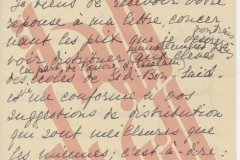 Je viens de recevoir votre
réponse à ma lettre, concer
nant les prix que je voudrais
voir distribuer aux élèves
des écoles de Sidi-Bou-Saïd.
et me conforme à vos
suggestions de distribution
qui sont meilleures que
les miennes; c'est-à-dire